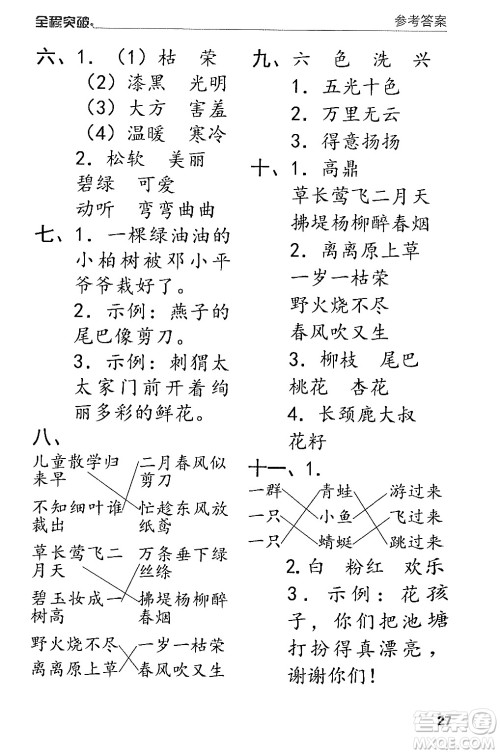 全程突破
参考答案
六、1.（1）枯 荣
（2）漆黑 光明
（3）大方 害羞
（4）温暖 寒冷
2.松软 美丽
碧绿 可爱
动听 弯弯曲曲
七、1.一棵绿油油的
小柏树被邓小平
爷爷栽好了。
2.示例：燕子的
尾巴像剪刀。
3.示例：刺猬太
太家门前开着绚
丽多彩的鲜花。
八、
儿童散学归
来早
二月春风似
剪刀
不知细叶谁
裁出
忙趁东风放
纸鸢
草长莺飞二
月天
万条垂下绿
丝绦
碧玉妆成一
树高
拂堤杨柳醉
春烟
野火烧不尽
一岁一枯荣
离离原上草
春风吹又生
九、六 色 洗 兴
1.五光十色
2.万里无云
3.得意扬扬
十、1.高鼎
草长莺飞二月天
拂堤杨柳醉春烟
2.离离原上草
一岁一枯荣
野火烧不尽
春风吹又生
3.柳枝 尾巴
桃花 杏花
4.长颈鹿大叔
花籽
十一、1.
一群 青蛙 游过来
一只 小鱼 飞过来
一只 蜻蜓 跳过来
2.白 粉红 欢乐
3.示例：花孩
子，你们把池塘
打扮得真漂亮，
谢谢你们！
27